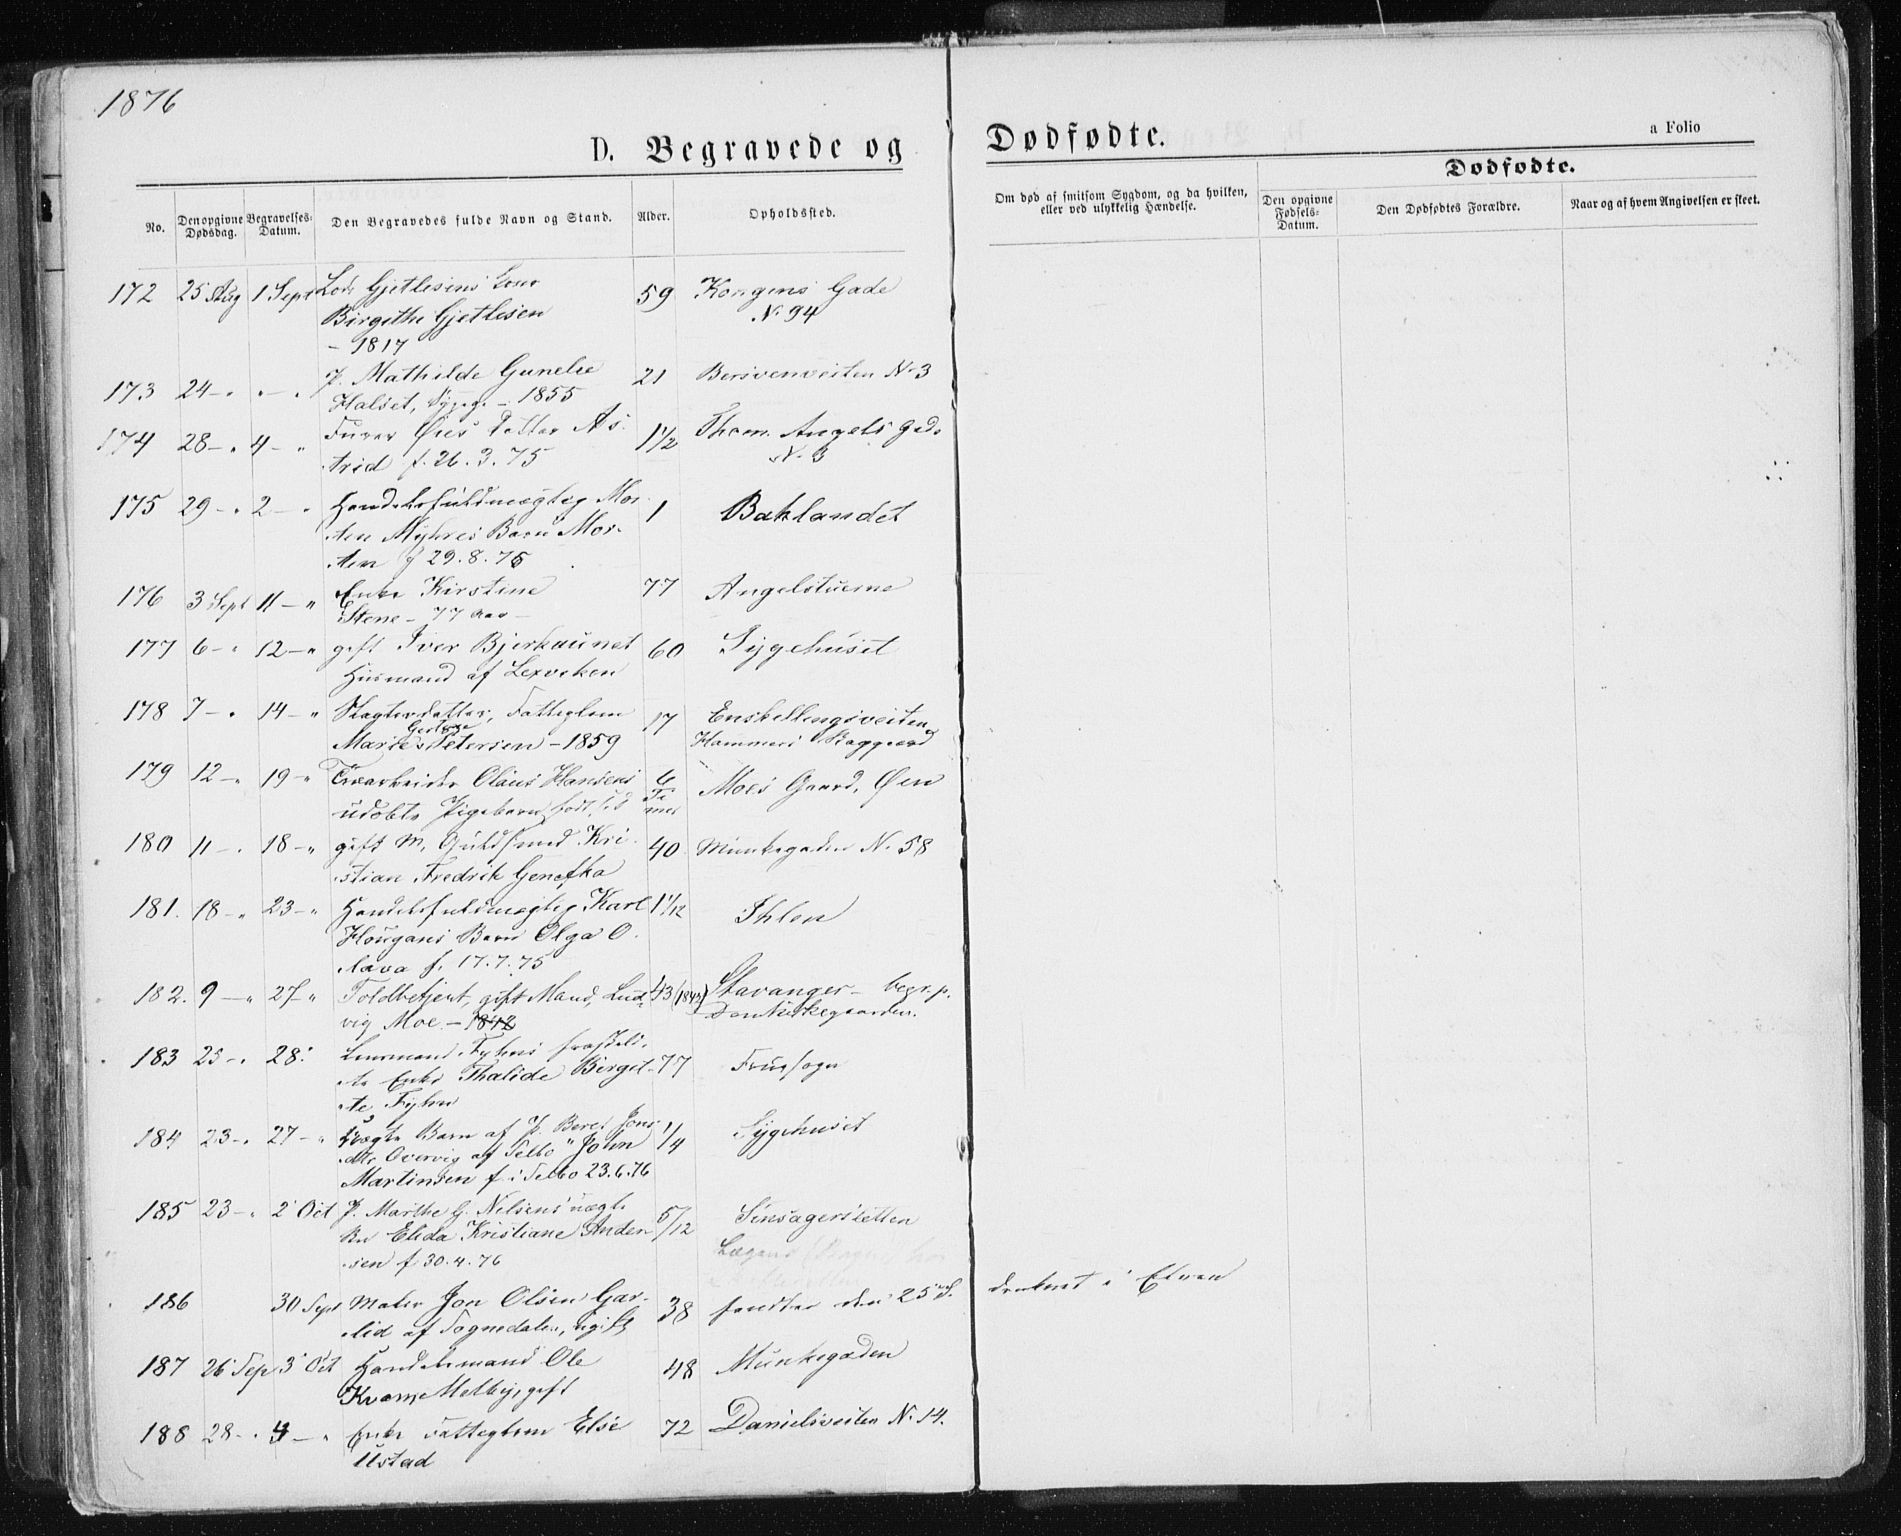 1876
D. Begravede og Dødfødte.
a Folio
No.
Den opgivne Dødsdag.
Begravelses-Datum.
Den Begravedes fulde Navn og Stand.
Alder.
Opholdssted.
Om død af smitsom Sygdom, og da hvilken, eller ved ulykkelig Hændelse.
Dødfødte.
Den opgivne Fødsels-Datum.
Den Dødfødtes Forældre.
Naar og af hvem Angivelsen er skeet.
172 25 Aug 1 Sept Lods Gjetlesens 59 Kongens Gade
Birgithe Gjetlesen N. 94
- 1817
173 24 - " " - " P. Mathilde Gunelie 21 Bersvenveiten N. 3
Halset, - 1855
174 28 - " 4 - " Øies Datter As- 1 1/2 Thom. Angels Gade
trid f. 26. 3. 75 N. 3
175 29 - " 2 - " Handelsfuldmægtig Mor- 1 Baklandet
ten Myhres Barn Mor-
ten f 29. 8. 75
176 3 Sept 11 - " Enke Kirstine 77 Angelstuerne
Stene - 77 Aar -
177 6 - " 12 - " gift Iver Bjerkaunet 60 Sygehuset
Husmand af Lexviken
178 7 - " 14 - " Slagterdatter, Fatteglem 17 Enskellingsveiten
Marie Petersen - 1859 Hammers Baggaard
179 12 - " 19 - " Olaus Hansens 6 Ti- Moes Gaard, Øen
udøbte Pigebarn, født mer
180 11 - " 18 - " gift M. Guldsmed Kri- 40 Munkegaden N. 58
stian Fredrik Genefka
181. 18 - " 23 - " Handelsfuldmægtig Karl 1 1/12 Ihlen
Hougans Barn Olga O-
lava f. 17. 7. 75
182. 9 - " 27 " Toldbetjent, gift Mand, Lud- 43 (1843) Stavanger - begr. p.
vig Moe - 1842
183 25 - " 28 " Lensmand Fyhns 77 Fruesogn
te Enke Thalide Birgit-
te Fyhn
184 23 - " 27 - " Uægte Barn af P. Beret Jons- 1/4 Sygehuset
dtr Overvig af Selbo " John
Martinsen f. i Selbo 23. 6. 76
185 23 - " 2 Oct P. Marthe G. Nelsens uægte 5/12 Sinsagerstetten
Bn Elida Kristiane Ander-
sen f 30. 4. 76
186 30 Sept Maler Jon Olsen Gar- 38 fundten den 25 S. druknet i Elven
lid af Sognedalen, ugift
187 26 Sep 3 Oct Handelsmand Ole 48 Munkegaden
Kvam Melby, gift
188 28 - " 4 - " Enke Fatteglem Else 72 Danielsveiten N. 14.
Ustad